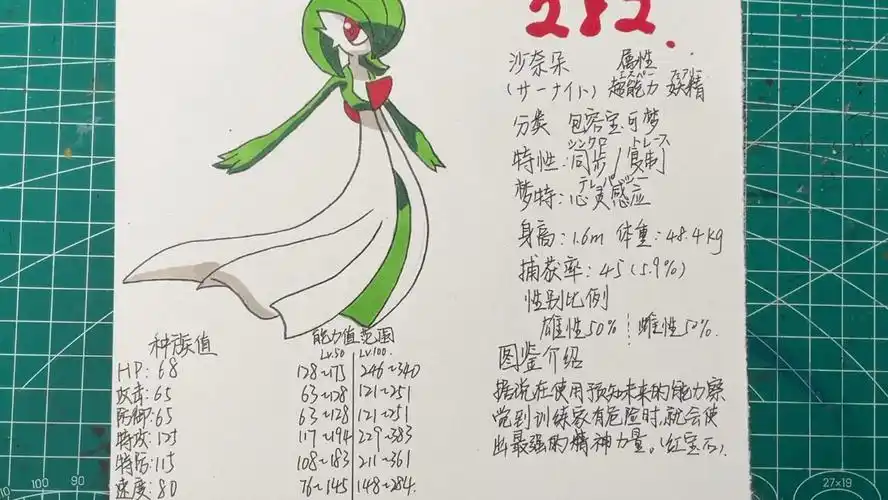 282.
沙奈朵 属性
エスパー フェアリー
(サーナイト) 超能力 妖精
分类 包容宝可梦
シンクロ トレース
特性:同步/复制
テレパシー
梦特:心灵感应
身高:1.6m 体重:48.4kg
捕获率:45(5.9%)
性别比例
雄性50% 雌性50%.
图鉴介绍
据说在使用预知未来的能力察
觉到训练家有危险时,就会使
出最强的精神力量。(红宝石).
种族值 能力值范围
Lv.50 Lv.100.
HP:68 128~175 246~340
攻击:65 63~128 121~251
防御:65 63~128 121~251
特攻:125 117~194 229~383
特防:115 108~183 211~361
速度:80 76~145 148~284.
10 100 90
80
27×19